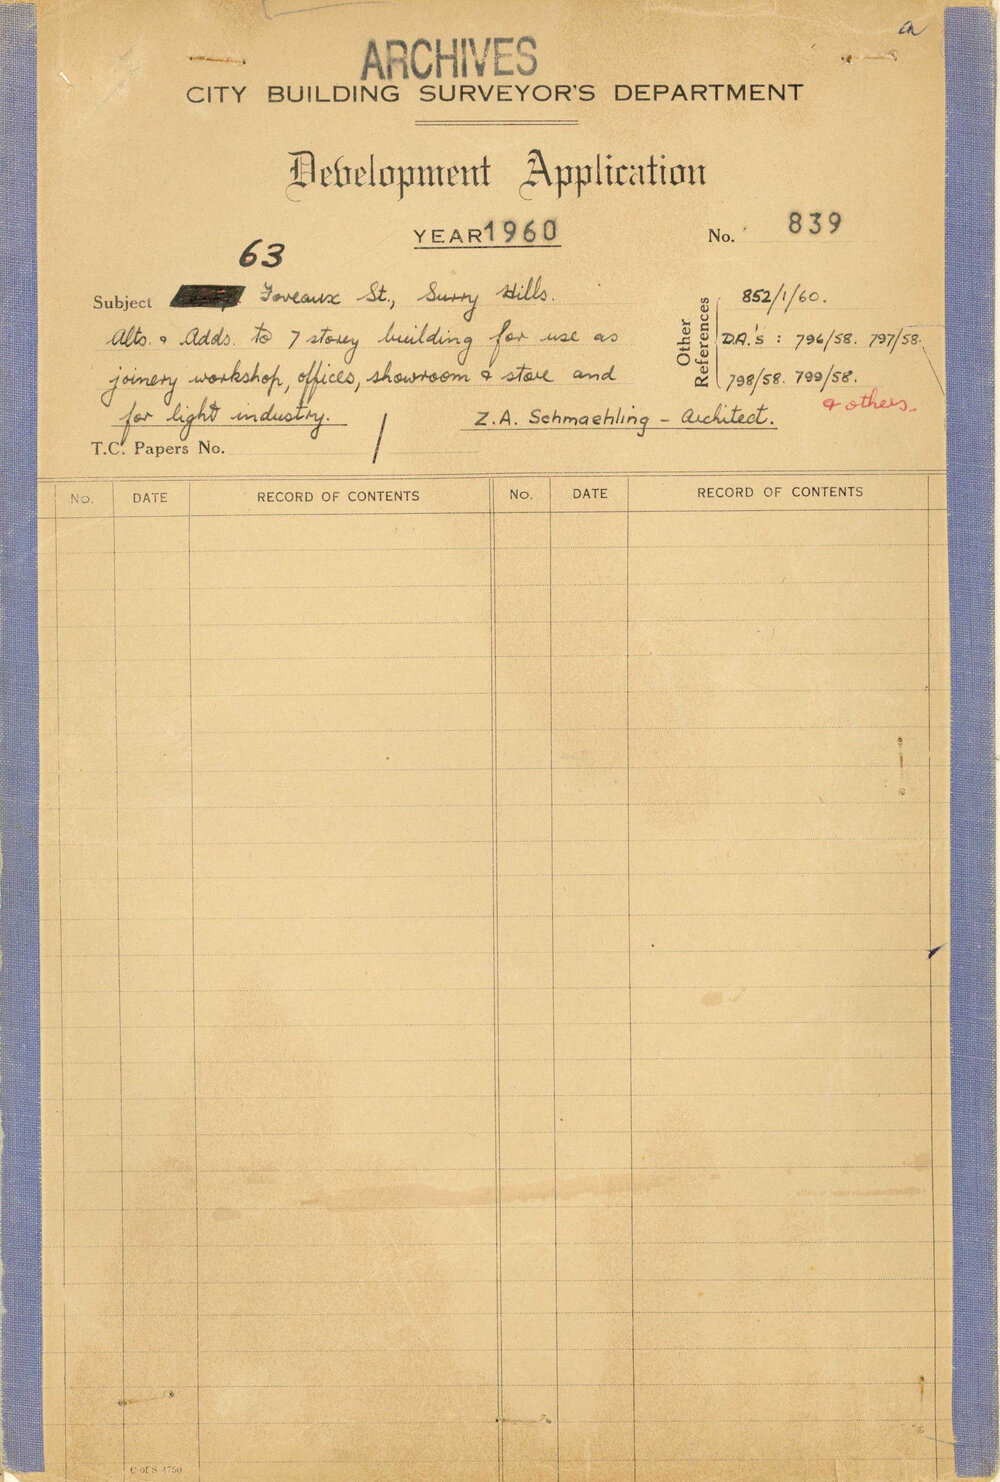 a
ARCHIVES
CITY BUILDING SURVEYOR'S DEPARTMENT
Development Application
YEAR 1960 No. 839
63
Subject Foveaux St., Surry Hills.
Alts. & Adds. to 7 storey building for use as
joinery workshop, offices, showroom & store and
for light industry. Z.A. Schmaehling - Architect.
Other References
852/1/60.
D.A.'s : 796/58. 797/58.
798/58. 799/58.
& others.
T.C. Papers No. /
No. DATE RECORD OF CONTENTS No. DATE RECORD OF CONTENTS
C of S 4750